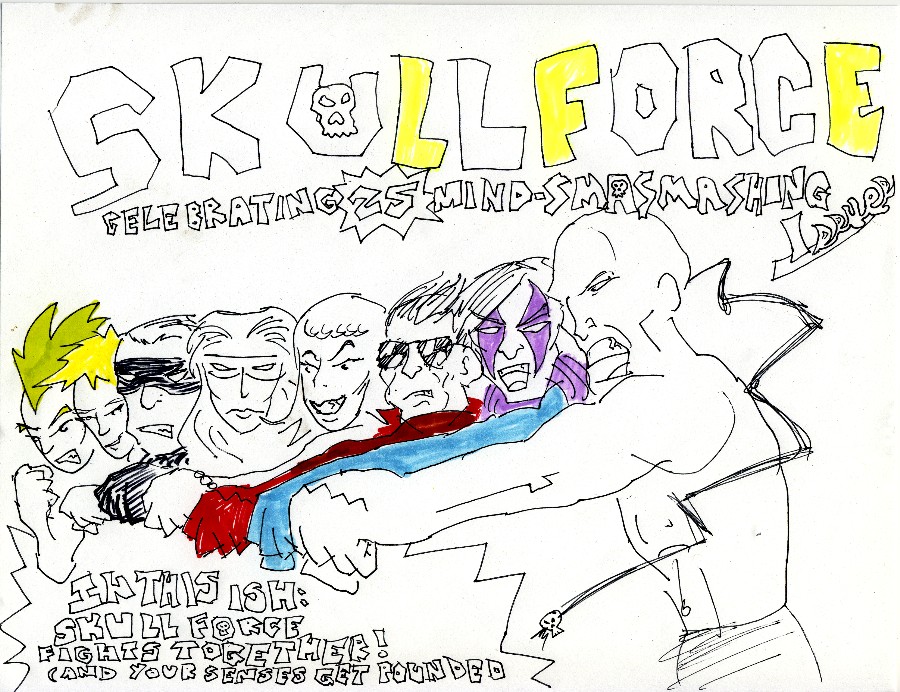 SKULLFORCE
CELEBRATING 25 MIND-SMASMASHING
IN THIS ISH:
SKULL FORCE
FIGHTS TOGETHER!
(AND YOUR SENSES GET POUNDED